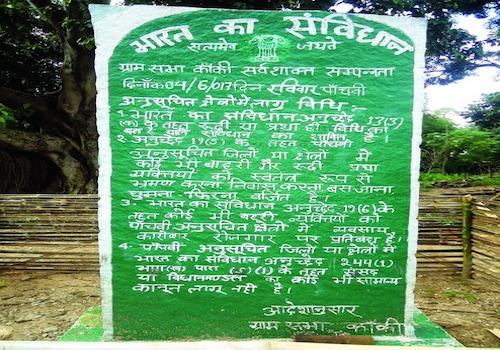 भारत का संविधान
सत्यमेव जयते
ग्राम सभा काँकी सर्वशक्ति सम्पन्नता
दिनाँक 04/6/017 दिन रविवार पाँचवी
अनुसूचित क्षेत्रो में लागू विधि:-
1. भारत का संविधान अनुच्छेद 13(3)
(क) के तहत रूढ़ी या प्रथा ही विधि का
बल है यानि संविधान की शक्ति है।
2. अनुच्छेद 19(5) के तहत पाँचवी
अनुसूचित जिलों या क्षेत्रों में
कोई भी बाहरी गैर रूढ़ी प्रथा
व्यक्तियों को स्वतंत्र रूप से
भ्रमण करना निवास करना बस जाना
घुमना फिरना वर्जित है।
3. भारत का संविधान अनुच्छेद 19(6) के
तहत कोई भी बहरी व्यक्तियों को
पाँचवी अनुसूचित क्षेत्रों में व्यवसाय
कारोबार रोजगार पर प्रतिबंध है।
4. पाँचवी अनुसूचित जिलों या क्षेत्रों में
भारत का संविधान अनुच्छेद 244(1)
भाग(ख) पारा (5)(1) के तहत संसद
या विधानमण्डल का कोई भी सामान्य
कानून लागू नहीं है।
आदेशानुसार
ग्राम सभा काँकी